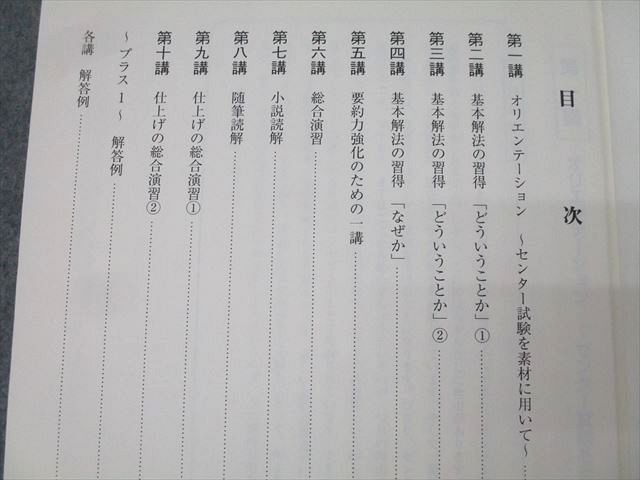 目次
第一講 オリエンテーション ～センター試験を素材に用いて～
第二講 基本解法の習得「どういうことか」①
第三講 基本解法の習得「どういうことか」②
第四講 基本解法の習得「なぜか」
第五講 要約力強化のための一講
第六講 総合演習
第七講 小説読解
第八講 随筆読解
第九講 仕上げの総合演習①
第十講 仕上げの総合演習②
～プラス1～ 解答例
各講 解答例